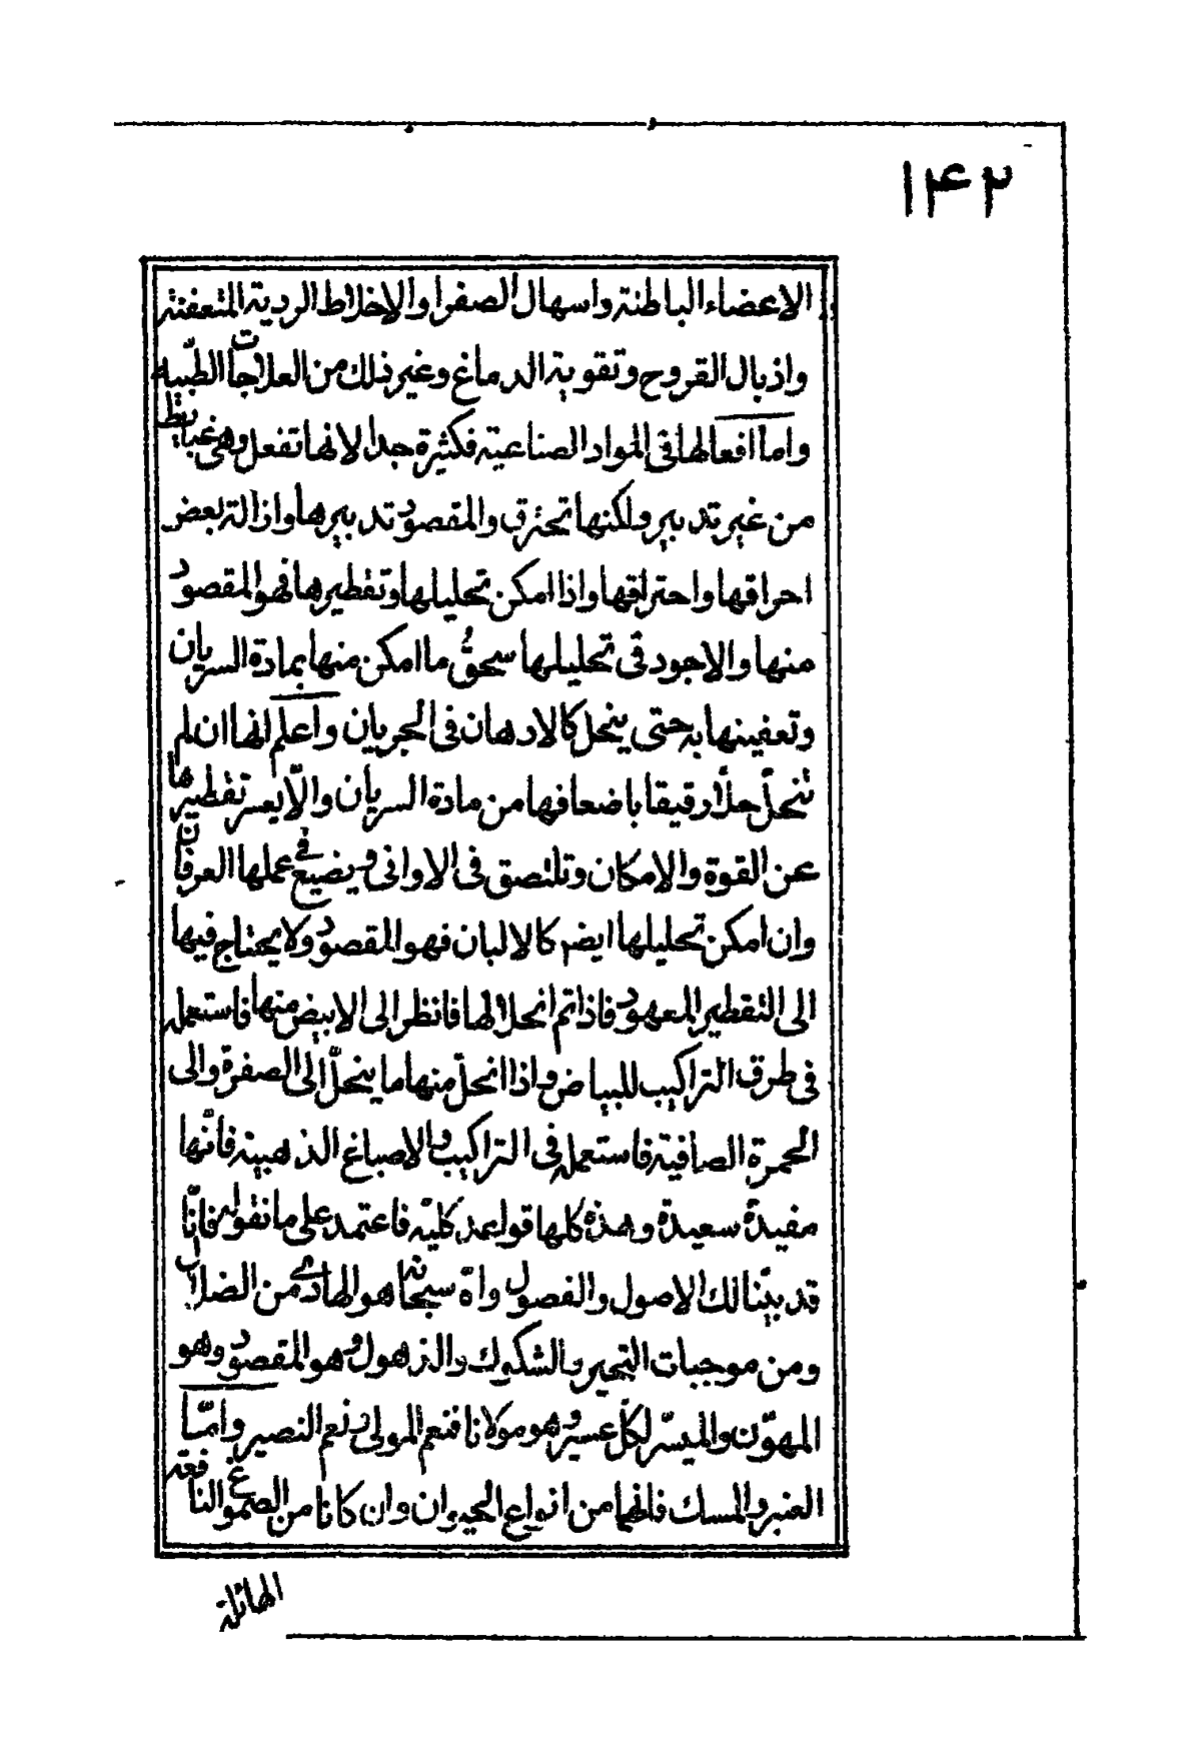 ۱۴۲
الاعضاء الباطنة واسهال الصفرا والاخلاط الردية المتعفنة
واذبال القروح وتقوية الدماغ وغير ذلك من العلاجات الطبّيه
واما افعالها فى المواد الصناعية فكثيرة جدا لانها تفعل وهى غبايط
من غير تدبير ولكنها تحترق والمقصود تدبيرها وازالة بعض
احراقها واحتراقها واذا امكن تحليلها وتقطيرها فهو المقصود
منها والاجود فى تحليلها سحق ما امكن منها بمادة السريان
وتعفينها به حتى ينحل كالادهان فى الجريان واعلم انها ان لم
تنحلّ حلّا رقيقا باضعافها من مادة السريان والّا يعسر تقطيرها
عن القوة والامكان وتلتصق فى الاوانى ويضيع فى عملها العرفان
وان امكن تحليلها ايضم كالالبان فهو المقصود ولا يحتاج فيها
الى التقطير المعهود فاذا تم انحلالها فانظر الى الابيض منها فاستعمله
فى طرق التراكيب للبياض واذا انحلّ منها ما ينحلّ الى الصفرة والى
الحمرة الصافية فاستعمله فى التراكيب والاصباغ الذهبية فانّها
مفيدة سعيدة وهذه كلها قواعد كليّه فاعتمد على ما نقوله فانّا
قد بيّنا لك الاصول والفصول والله سبحانه هو الهادى من الضلال
ومن موجبات التحير والشكوك والذهول وهو المقصود وهو
المهوّن والميسّر لكلّ عسير وهو مولانا فنعم المولى ونعم النصير وامّا
العنبر والمسك فانهما من انواع الحيوان وان كانا من الصموغ النافعة
الهائلة